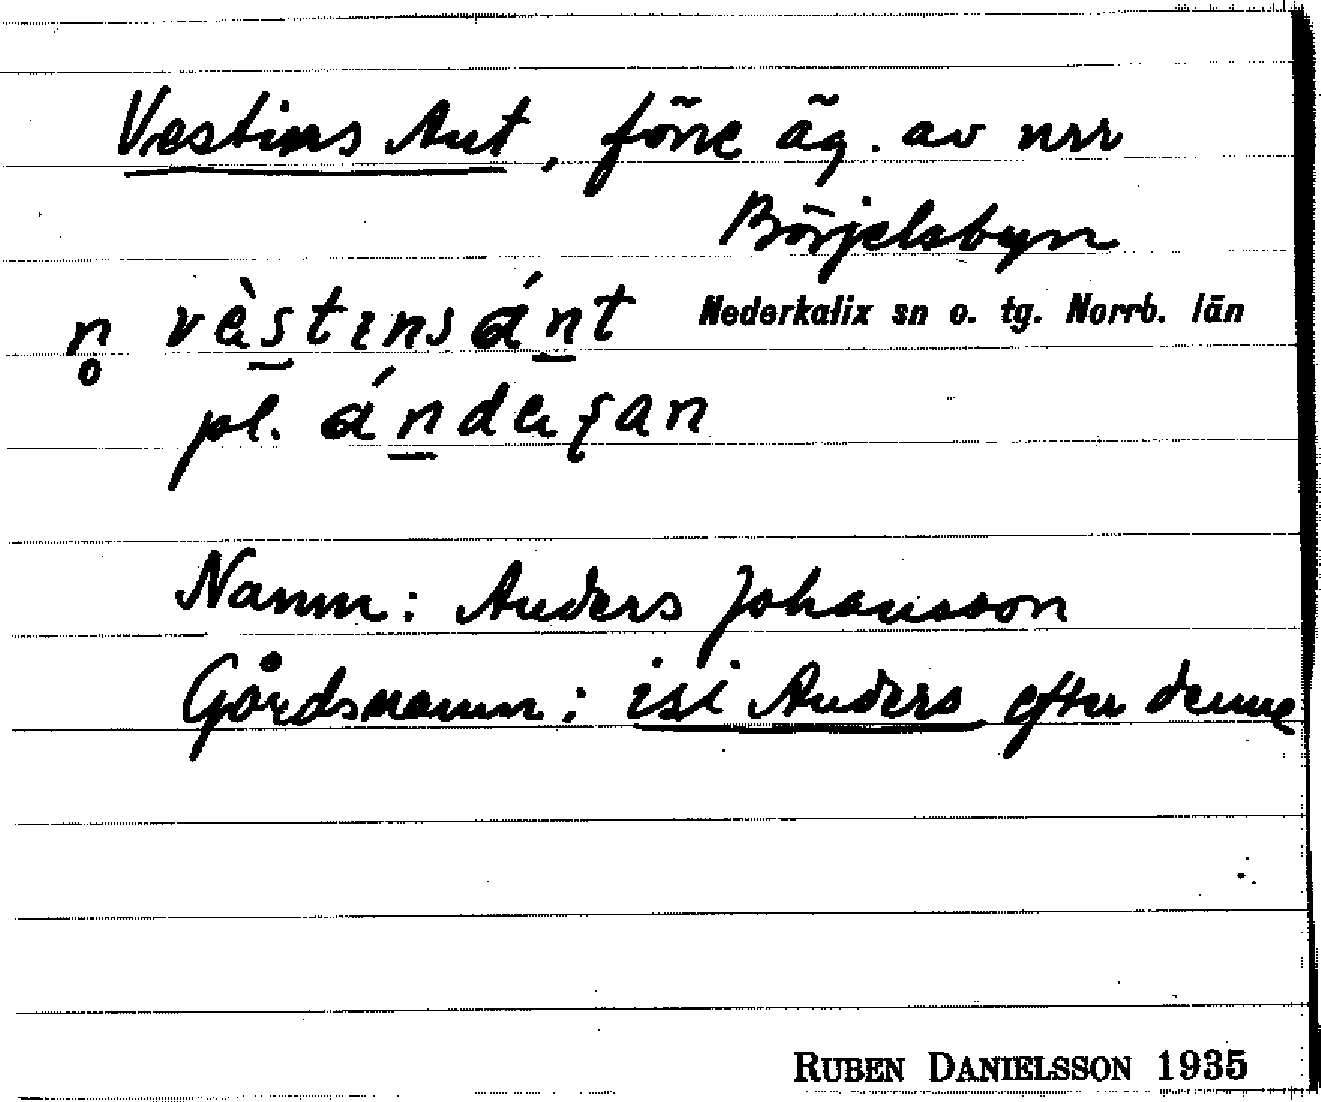 Vestins Ant, förre äg. av nrr
Börjelsbyn
n̥ vèstɩnsánt Nederkalix sn o. tg. Norrb. län
pl. ándeʂan
Namn: Anders Johansson
Gårdsnamn: isi Anders efter denne
RUBEN DANIELSSON 1935